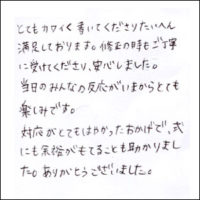 とてもカワイく書いてくださりたいへん
満足しております。修正の時もご丁寧
に受けてくださり、安心しました。
当日のみんなの反応がいまからとても
楽しみです。
対応がとてもはやかったおかげで、式
にも余裕がもてることも助かりまし
た。ありがとうございました。